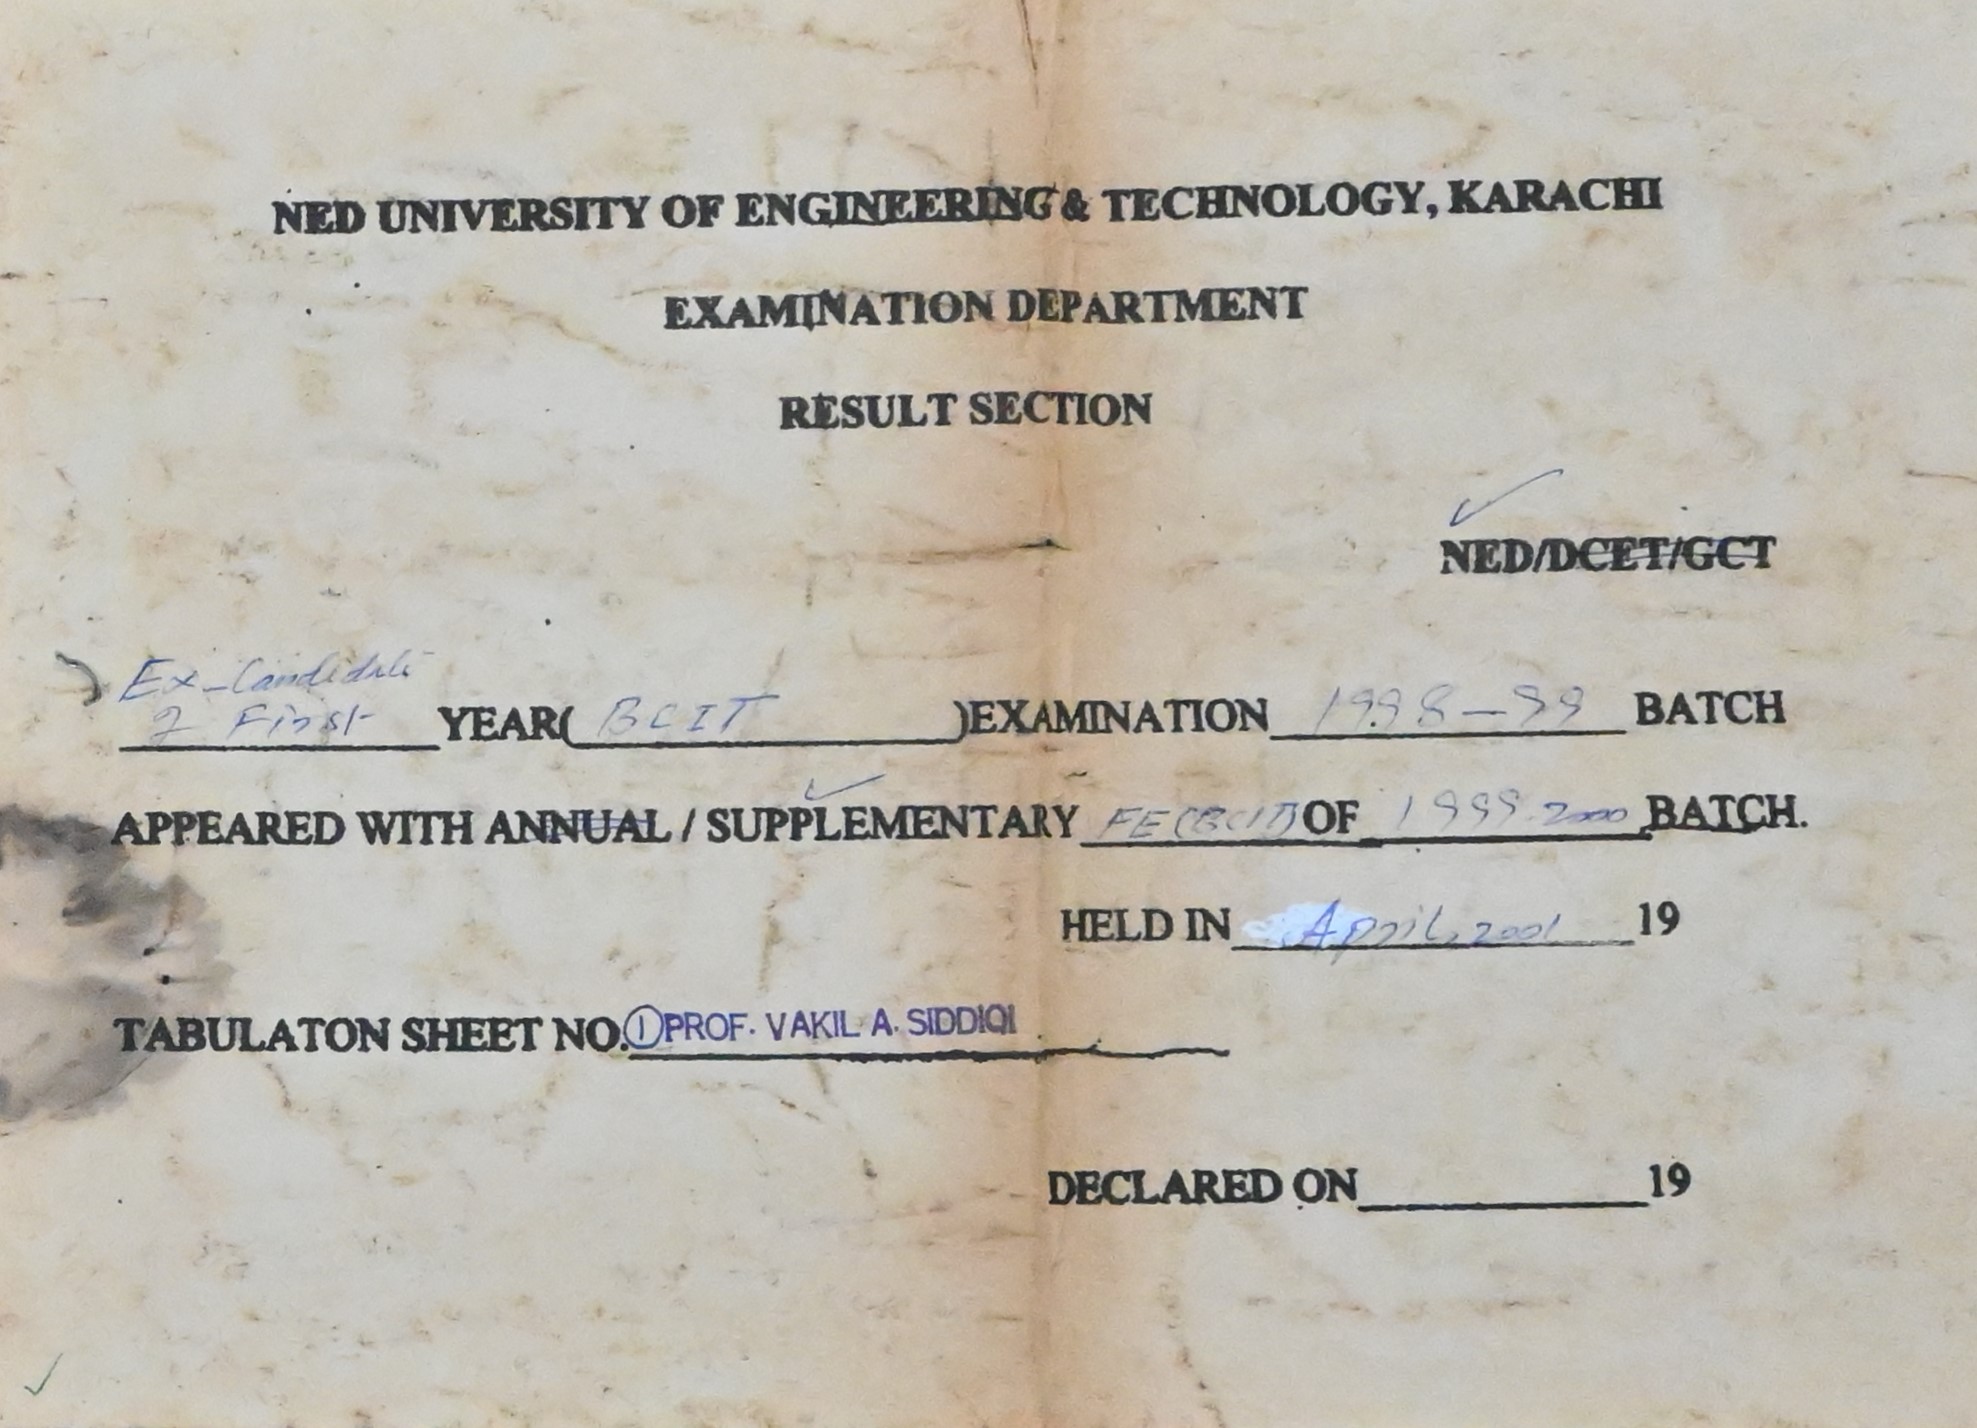 NED UNIVERSITY OF ENGINEERING & TECHNOLOGY, KARACHI
EXAMINATION DEPARTMENT
RESULT SECTION
NED/DCET/GCT
Ex-Candidate
First YEAR( BCIT )EXAMINATION 1998-99 BATCH
APPEARED WITH ANNUAL / SUPPLEMENTARY FE(BCIT) OF 1999-2000 BATCH.
HELD IN April, 2001 19
TABULATON SHEET NO. 1 PROF. VAKIL A. SIDDIQI
DECLARED ON 19